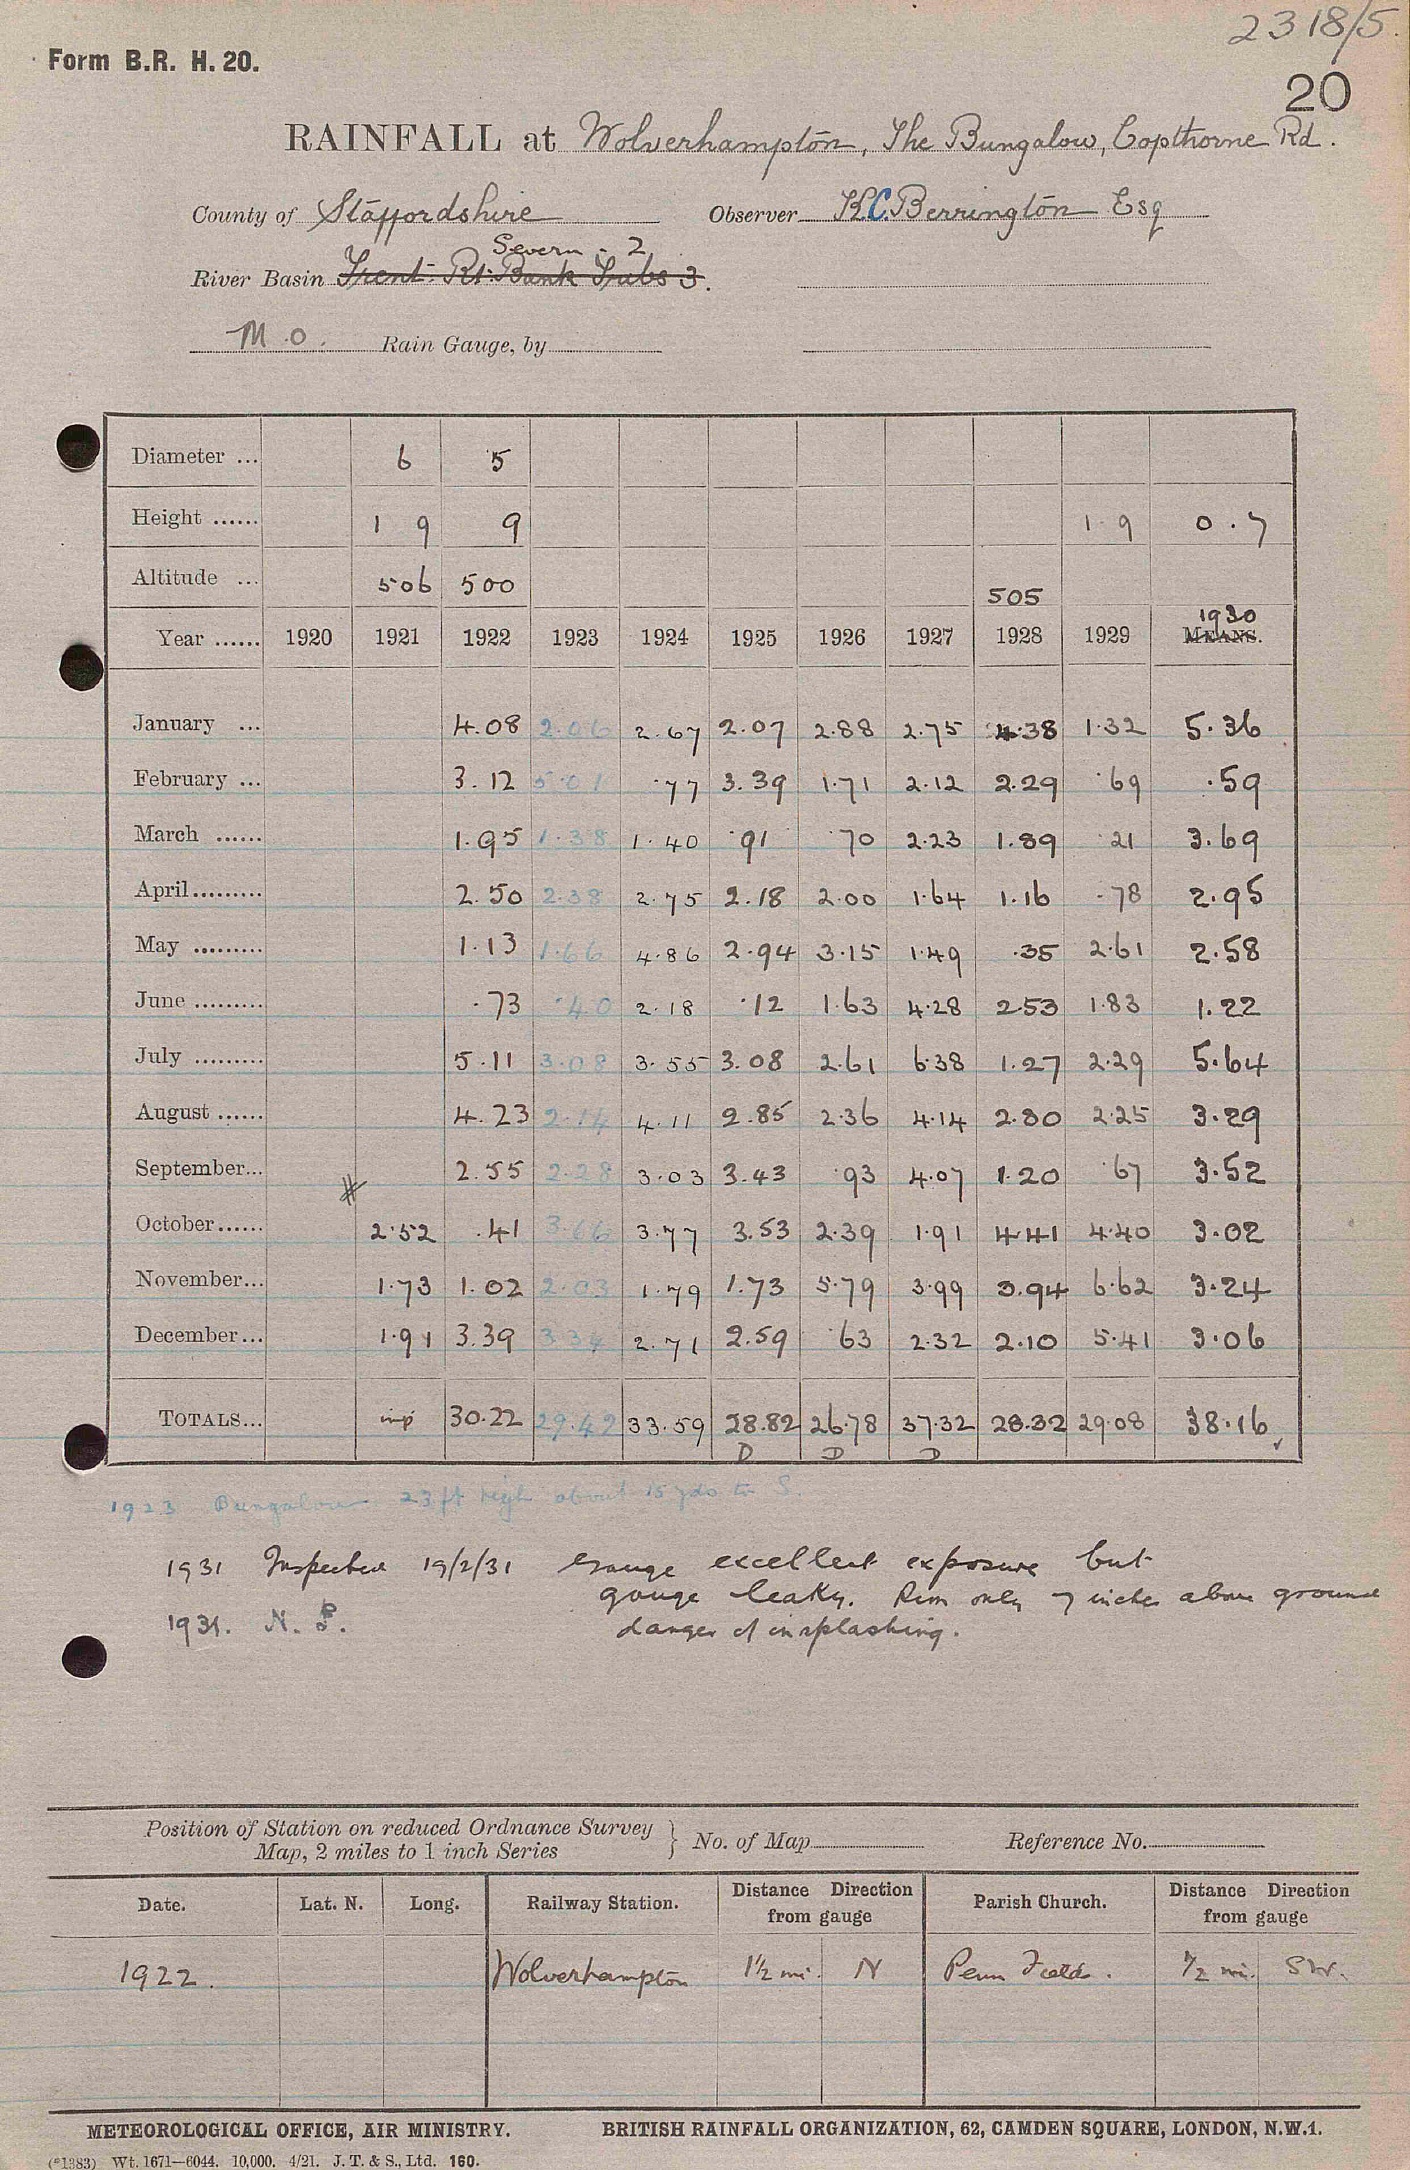 2318/5.
Form B.R. H. 20.
20
RAINFALL at Wolverhampton, The Bungalow, Copthorne Rd.
County of Staffordshire Observer K.C. Berrington Esq
Severn : 2
River Basin Trent. Rt. Bank Tribs 3.
M.O. Rain Gauge, by
Diameter ... 6 5
Height ...... 1 9 9 1·9 0·7
Altitude ... 506 500 505
1930
Year ...... 1920 1921 1922 1923 1924 1925 1926 1927 1928 1929 MEANS.
January ... 4.08 2.06 2.67 2.07 2.88 2.75 4.38 1.32 5.36
February ... 3.12 5.01 .77 3.39 1.71 2.12 2.29 .69 .59
March ...... 1.95 1.38 1.40 .91 .70 2.23 1.89 .21 3.69
April ......... 2.50 2.38 2.75 2.18 2.00 1.64 1.16 .78 2.95
May ......... 1.13 1.66 4.86 2.94 3.15 1.49 .35 2.61 2.58
June ......... .73 .40 2.18 .12 1.63 4.28 2.53 1.83 1.22
July ......... 5.11 3.08 3.55 3.08 2.61 6.38 1.27 2.29 5.64
August ...... 4.23 2.14 4.11 2.85 2.36 4.14 2.80 2.25 3.29
September... 2.55 2.28 3.03 3.43 .93 4.07 1.20 .67 3.52
October...... 2.52 .41 3.66 3.77 3.53 2.39 1.91 4.41 4.40 3.02
November... 1.73 1.02 2.03 1.79 1.73 5.79 3.99 3.94 6.62 3.24
December... 1.91 3.39 3.34 2.71 2.59 .63 2.32 2.10 5.41 3.06
TOTALS... imp 30.22 29.42 33.59 28.82 26.78 37.32 28.32 29.08 38.16
D D D
1923 Bungalow 23 ft high about 15 yds to S.
1931 Inspected 19/2/31 Gauge excellent exposure but
gauge leaky. Rim only 7 inches above ground
1931. N. P. danger of insplashing.
Position of Station on reduced Ordnance Survey
Map, 2 miles to 1 inch Series } No. of Map Reference No.
Date. Lat. N. Long. Railway Station. Distance Direction from gauge Parish Church. Distance Direction from gauge
1922. Wolverhampton 1½ mi. N Penn Fields. ½ mi. SW.
METEOROLOGICAL OFFICE, AIR MINISTRY. BRITISH RAINFALL ORGANIZATION, 62, CAMDEN SQUARE, LONDON, N.W.1.
(*1383) Wt. 1671—6044. 10,000. 4/21. J. T. & S., Ltd. 160.